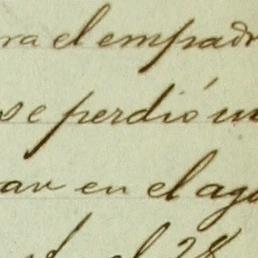 ra el empadr
se perdió in
ar en el agu
el 28